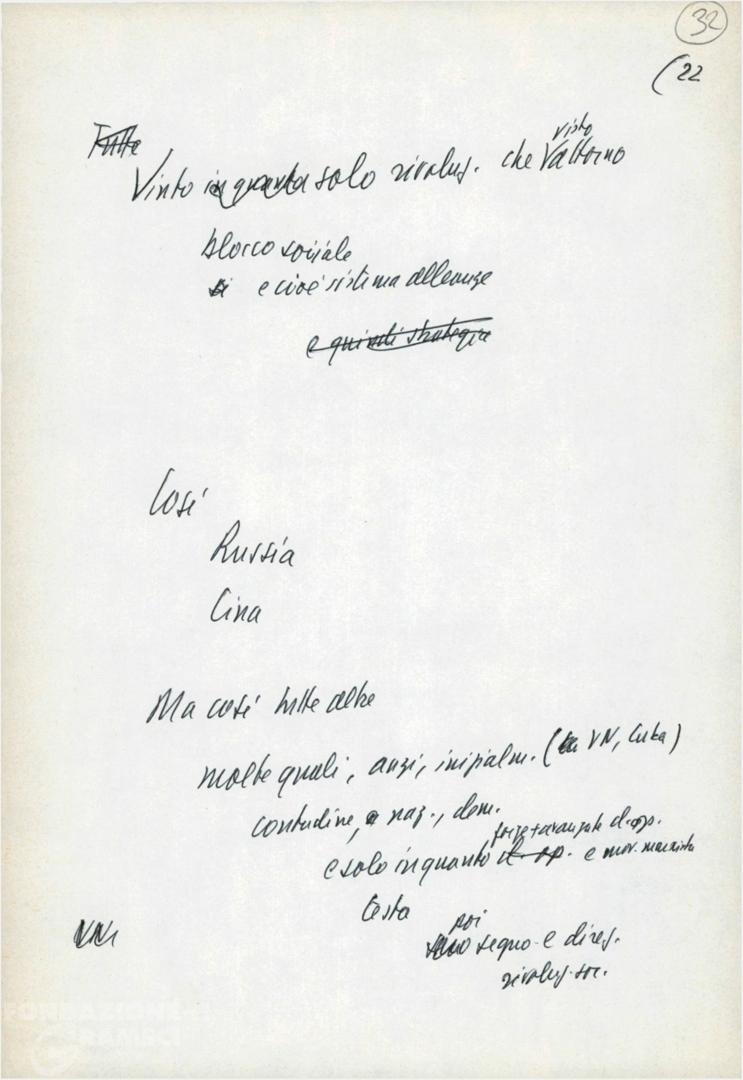 32
(22
Tutte
visto
Vinto in quanto solo rivoluz. che Vattorno
blocco sociale
si e cioè sistema alleanze
e quindi strategia
Così
Russia
Cina
Ma così tutte altre
molte quali, anzi, inizialm. (VN, Cuba)
contadine, naz., dem.
forze + avanzate cl. op.
e solo in quanto cl. op. e mov. marxista
testa
poi
segno e direz.
rivoluz. soc.
VN
FONDAZIONE
GRAMSCI